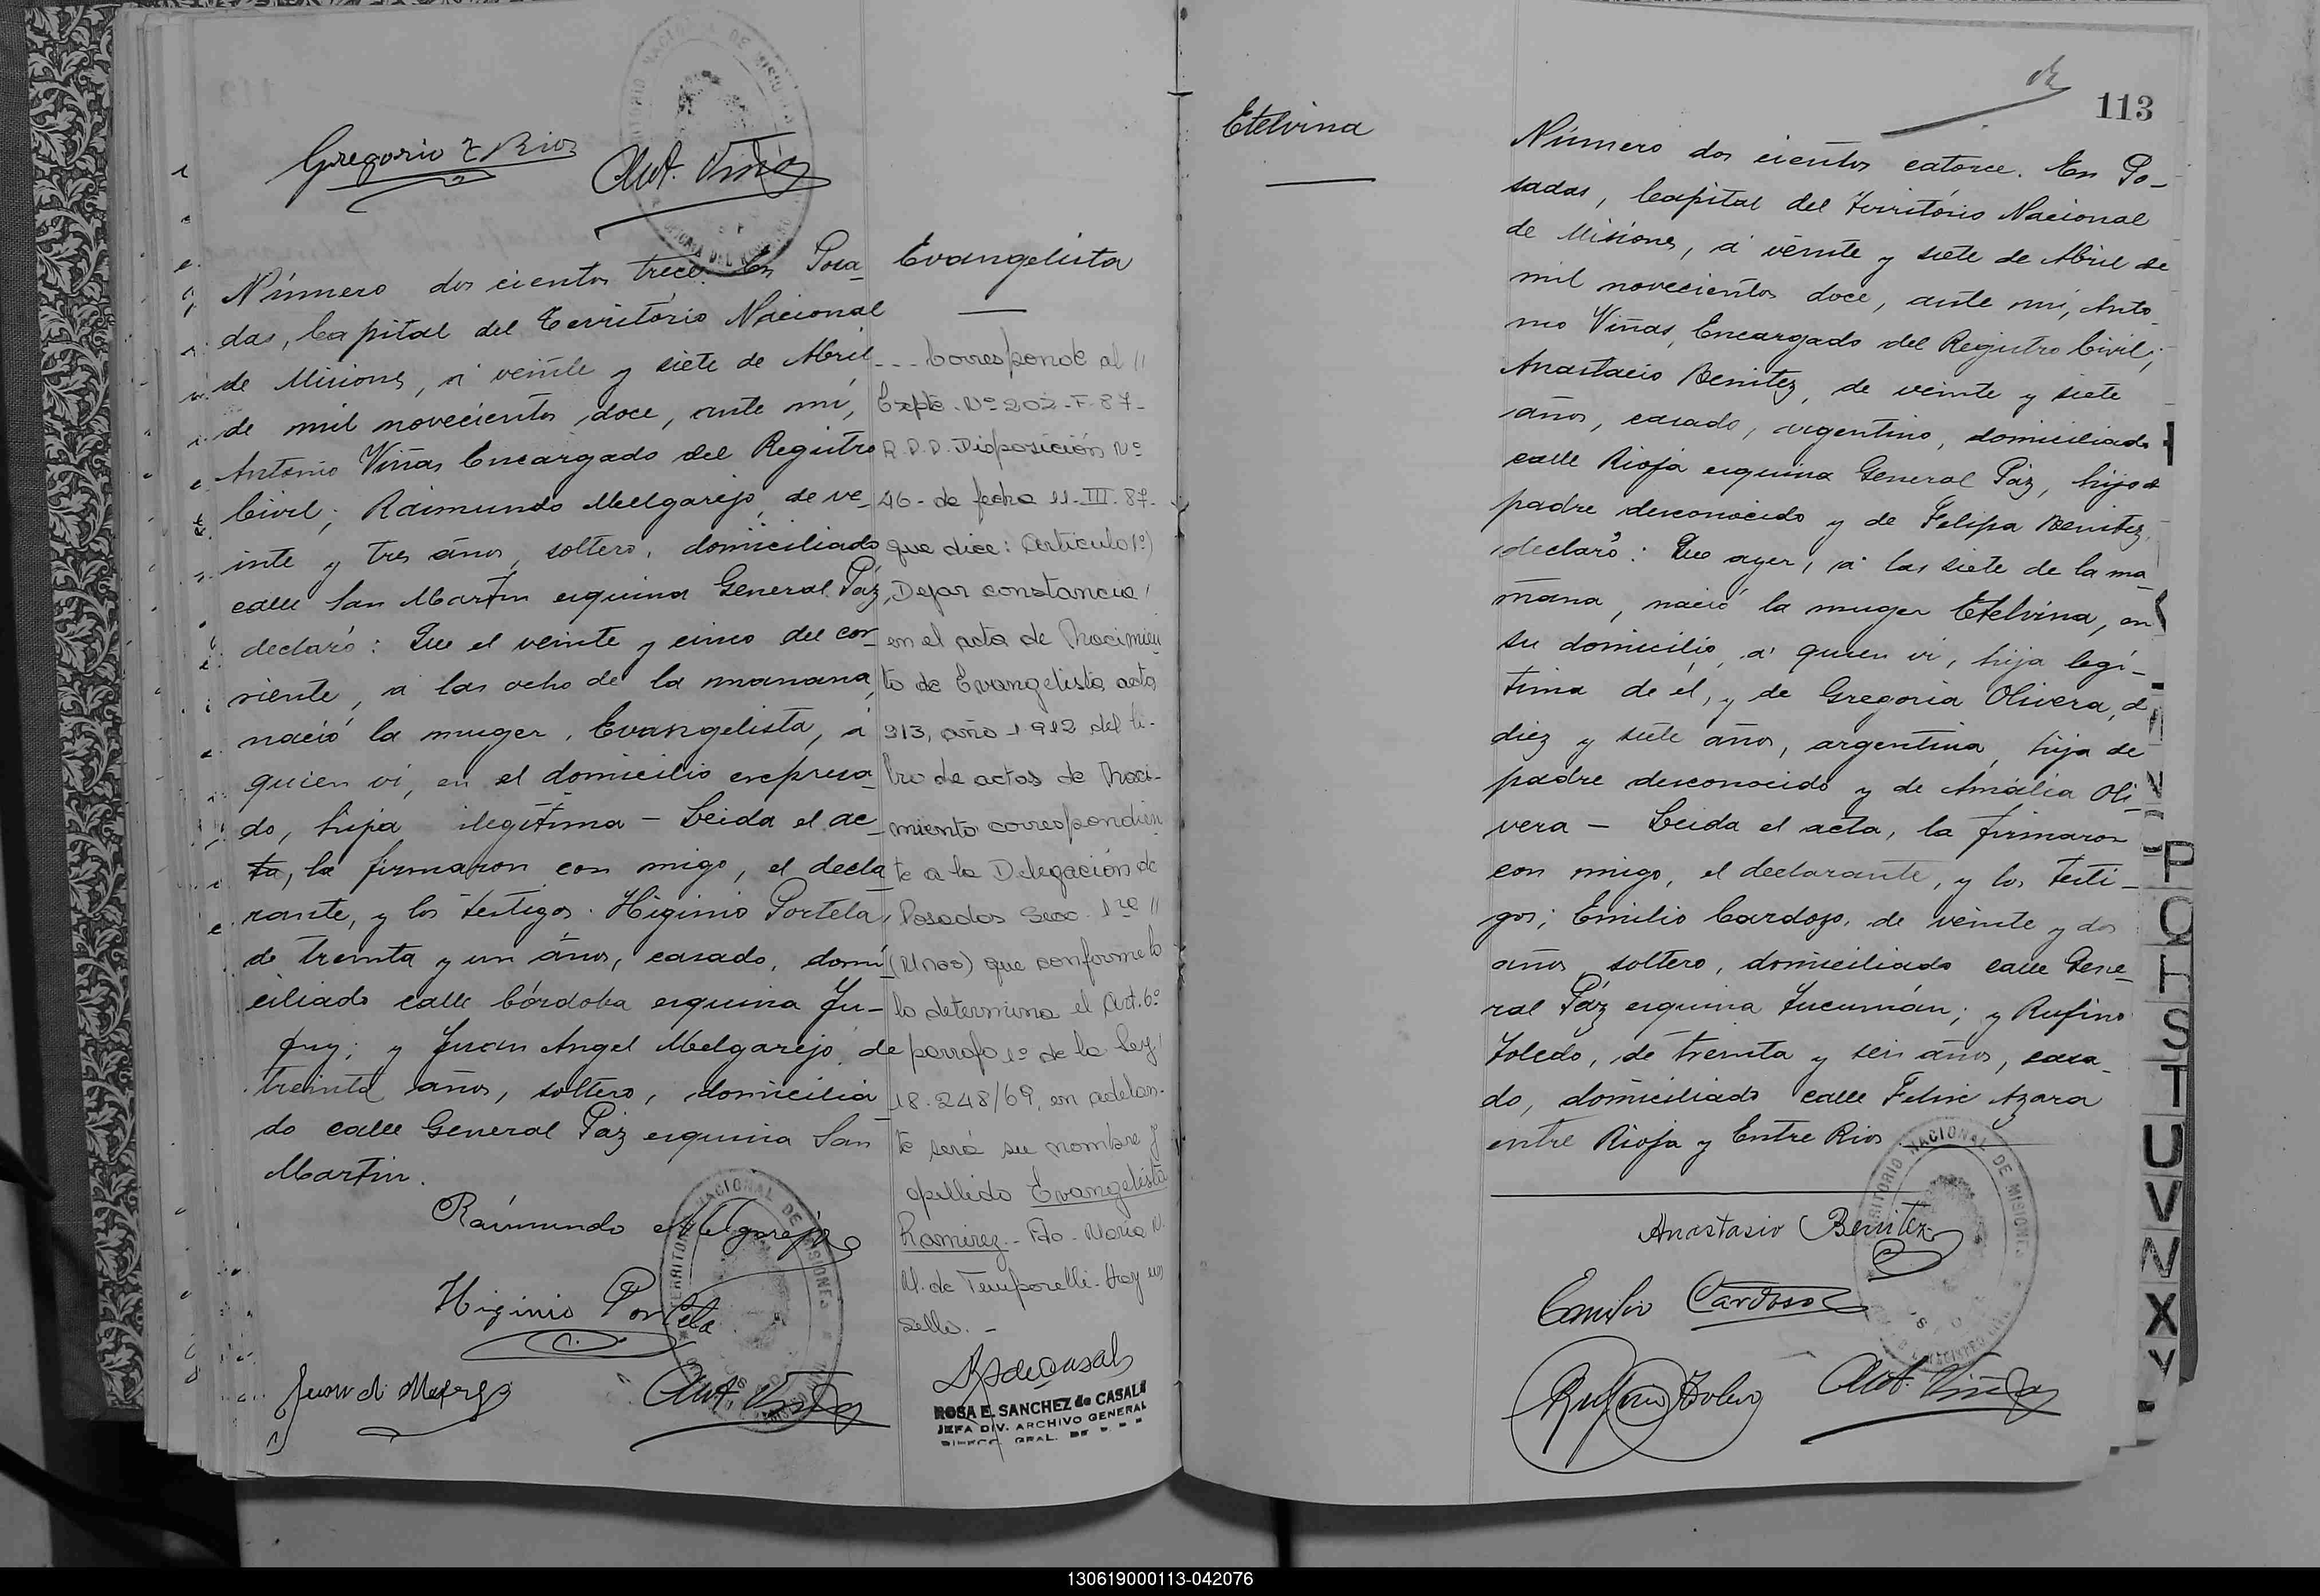 Gregorio Z Rios
Ant. Viñas
TERRITORIO NACIONAL DE MISIONES
Número dos cientos trece. En Posa-
das, Capital del Território Nacional
de Misiones, á veinte y siete de Abril
de mil novecientos doce, ante mí,
Antonio Viñas Encargado del Registro
Civil; Raimundo Melgarejo, de ve-
inte y tres años, soltero, domiciliado
calle San Martin esquina General Paz,
declaró: Que el veinte y cinco del cor-
riente, á las ocho de la manana,
nació la muger, Evangelista, á
quien vi, en el domicilio expresa-
do, hija ilegítima - Leida el ac-
ta, la firmaron con migo, el decla-
rante, y los testigos. Higinio Portela,
de treinta y un años, casado, domi-
ciliado calle Córdoba esquina Ju-
juy; y Juan Angel Melgarejo, de
treinta años, soltero, domicilia-
do calle General Paz esquina San
Martin.
Raimundo Melgarejo
Higinio Portela
Ant. Viñas
TERRITORIO NACIONAL DE MISIONES
Evangelista
--- Corresponde al //
Expte. Nº 202-F-87-
R.P.D. Disposición Nº
46- de fecha 11-III-87-
que dice: Artículo 1º)
Dejar constancia /
en el acta de Nacimien
to de Evangelista acta
213, año 1912 del li-
bro de actas de Naci-
miento correspondien
te a la Delegación de
Posadas Secc. 1ra //
(Unos) que conforme lo
lo determina el Art. 6º
parrafo 1º de la Ley /
18.248/69, en adelan-
te será su nombre y
apellido Evangelista
Ramirez.- Fdo. Maria N.
M. de Temporelli- Hay un
sello. -
ROSA E. SANCHEZ de CASALS
JEFA DIV. ARCHIVO GENERAL
113
Etelvina
Número dos cientos catorce. En Po-
sadas, Capital del Território Nacional
de Misiones, á veinte y siete de Abril de
mil novecientos doce, ante mí, Anto-
nio Viñas, Encargado del Registro Civil;
Anastacio Benitez, de veinte y siete
años, casado, argentino, domiciliado
calle Rioja esquina General Paz, hijo de
padre desconocido y de Felipa Benitez,
declaró: Que ayer, á las siete de la ma-
ñana, nació la muger Etelvina, en
su domicilio, á quien vi, hija legí-
tima de él, y de Gregoria Olivera, de
diez y siete años, argentina, hija de
padre desconocido y de Amália Oli-
vera - Leida el acta, la firmaron
con migo, el declarante, y los testi-
gos; Emilio Cardozo, de veinte y dos
años, soltero, domiciliado calle Gene-
ral Paz esquina Tucumán; y Rufino
Toledo, de treinta y seis años, casa-
do, domiciliado calle Felix Azara
entre Rioja y Entre Rios
TERRITORIO NACIONAL DE MISIONES
Anastasio Benitez
Emilio Cardoso
Rufino Toledo
Ant. Viñas
P
Q
H
S
T
U
V
N
X
Y
130619000113-042076